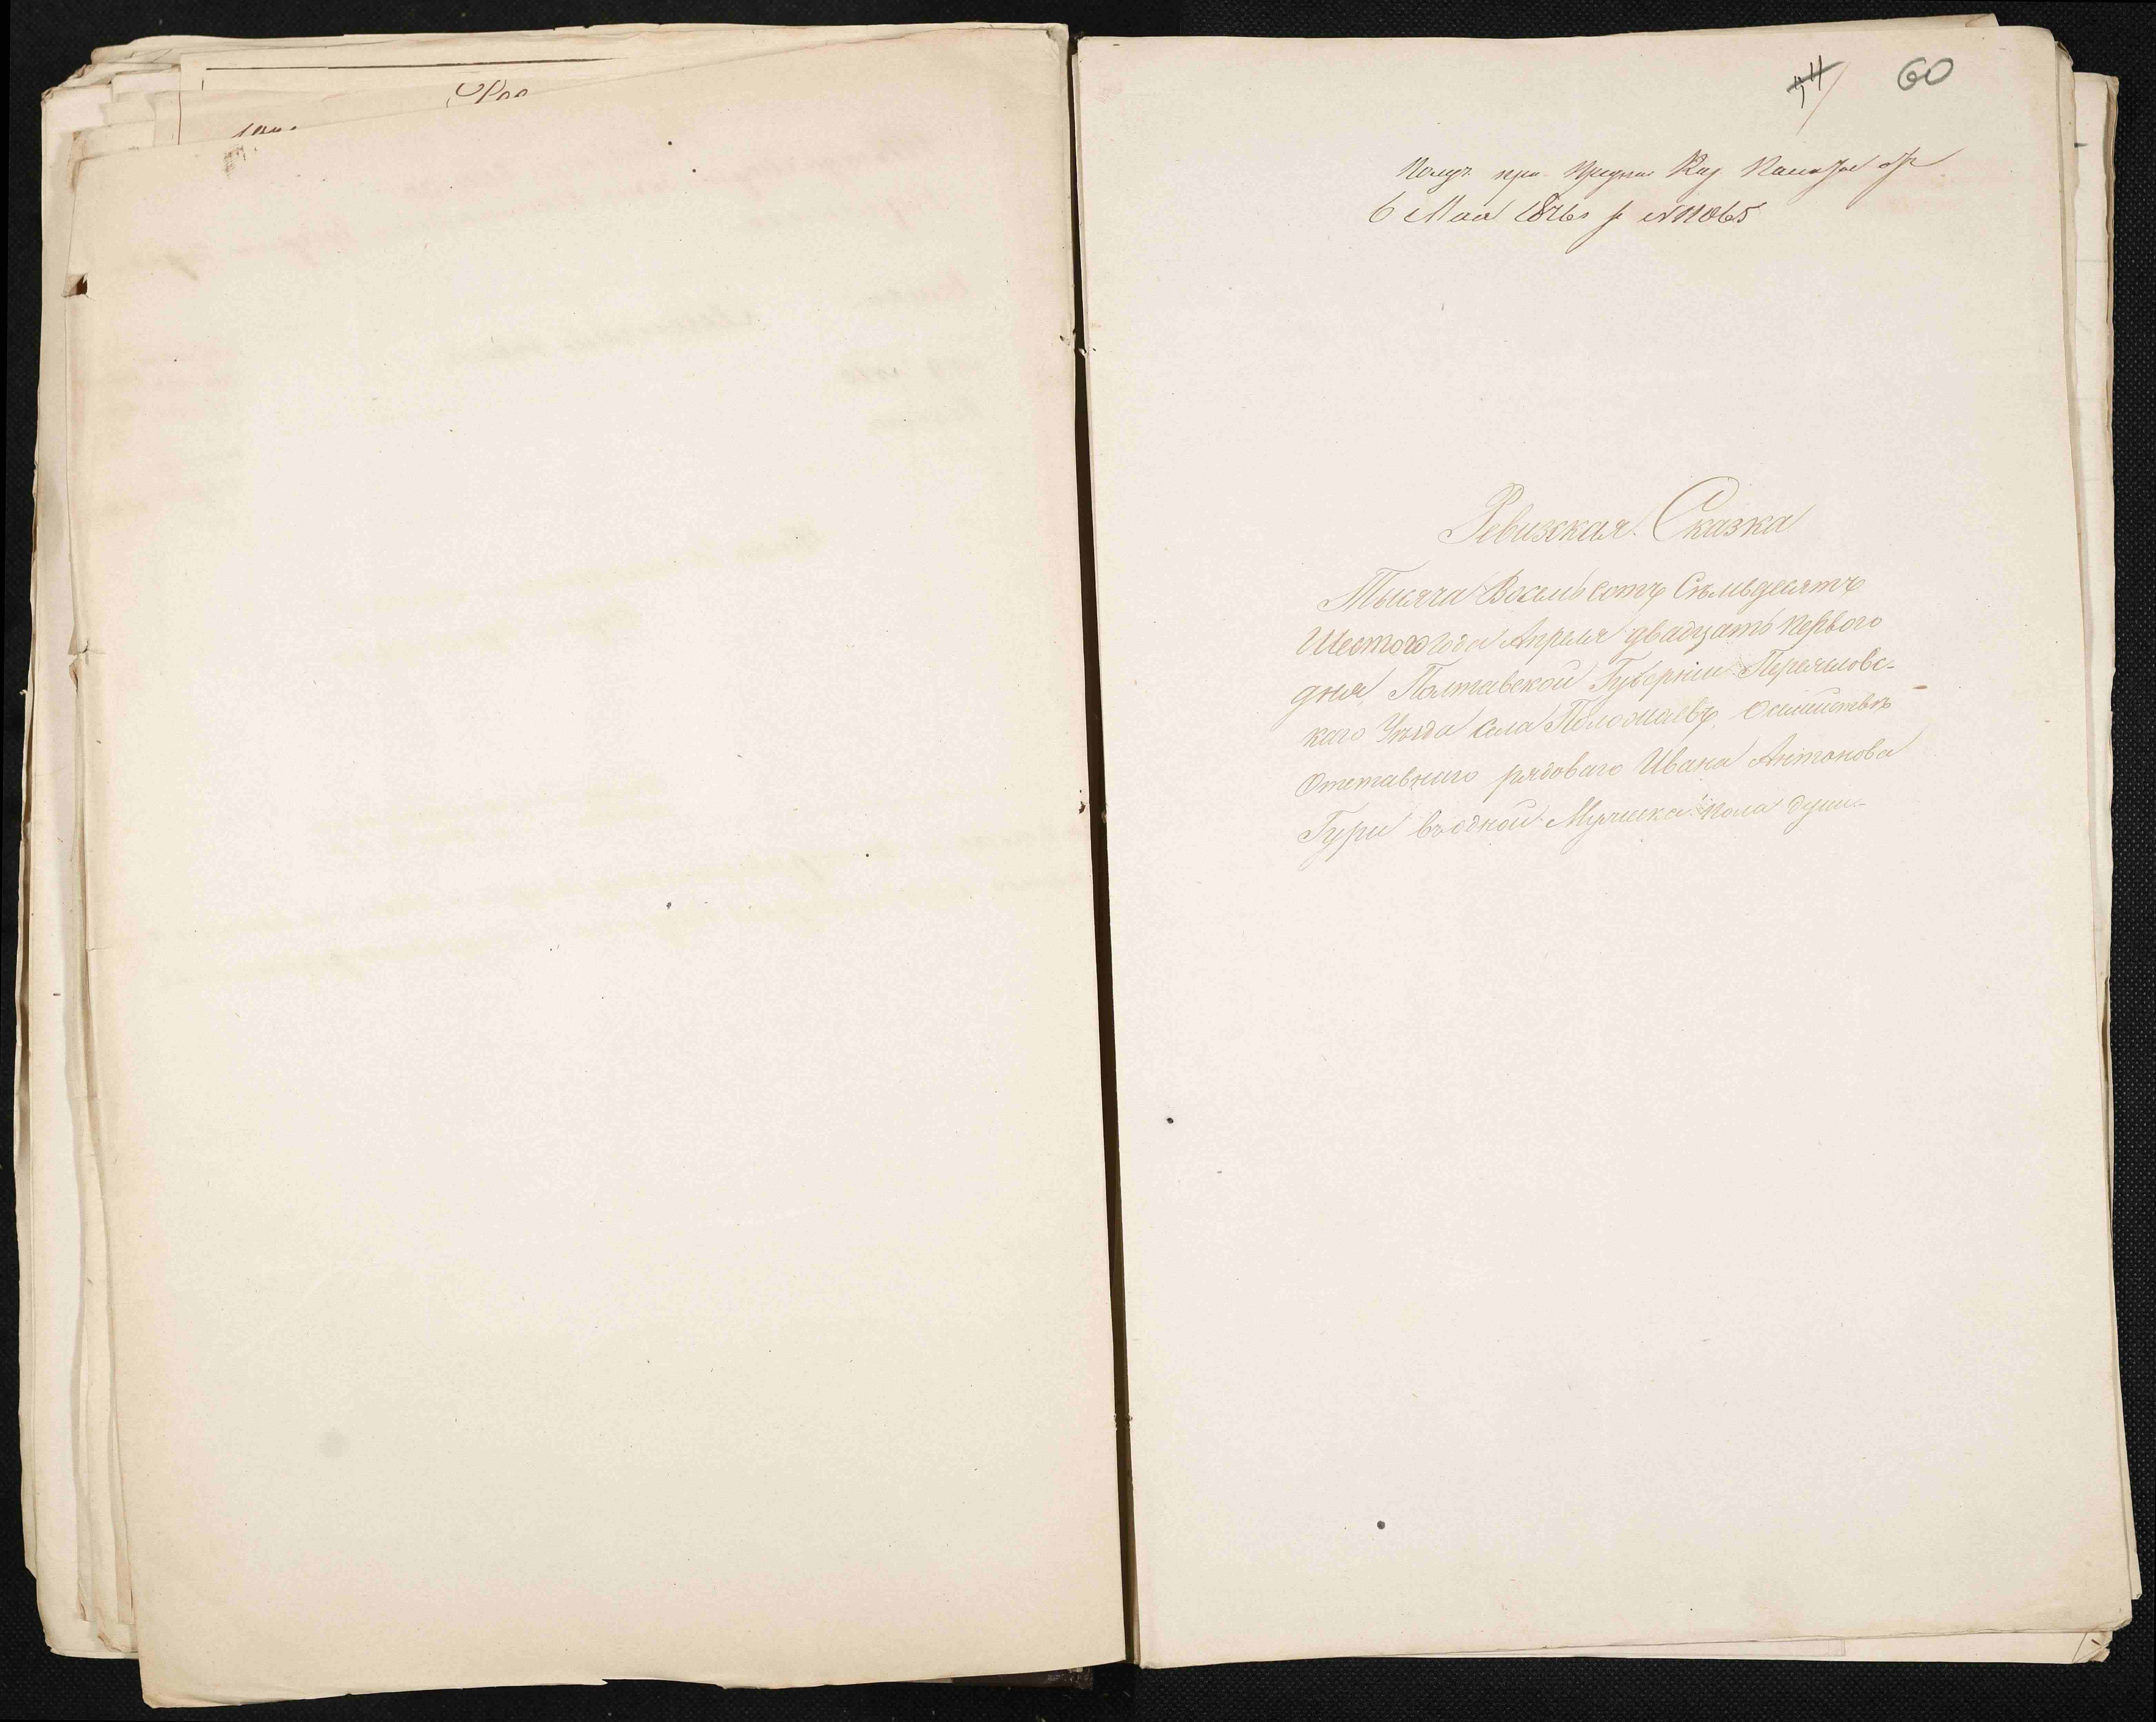 60
Получ. при предпис. Каз. Палаты от
6 Мая 1876 г. № 11065
Ревизская Сказка
Тысяча Восемь сотъ Съмьдесятъ
Шестого года Апреля двадцать первого
дня, Полтавской Губерніи Переяловс-
каго Уезда села Положаевъ, Осимействѣ
Отставнаго рядоваго Ивана Антонова
Гури въодной Мужеска пола души